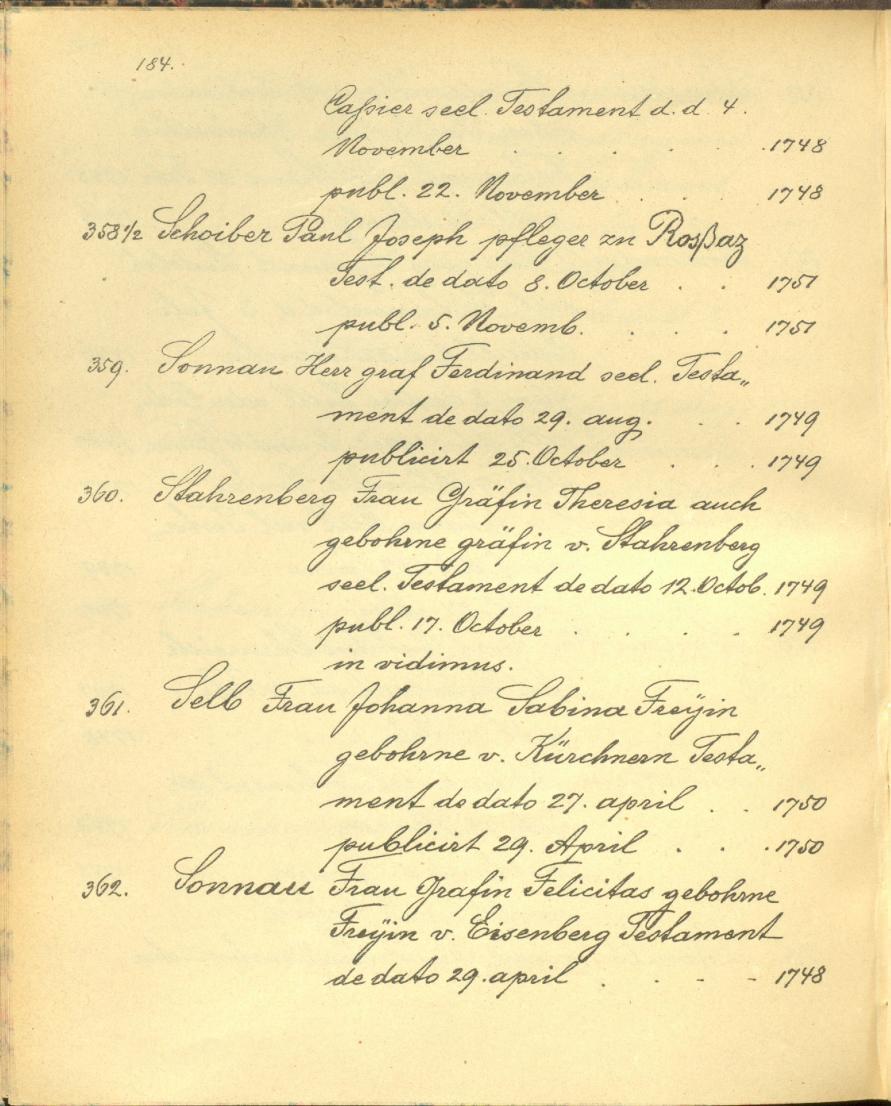 184.
Caßier seel. Testament d. d. 4.
November . . . . . . 1748
publ. 22. November . . . 1748
358 1/2 Schoiber Paul Joseph pfleger zu Rosßaz
Test. de dato 8. October . . 1751
publ. 5. Novemb. . . . . 1751
359. Sonnau Herr graf Ferdinand seel. Testa„
ment de dato 29. aug. . . 1749
publicirt 25. October . . . 1749
360. Stahrenberg Frau Gräfin Theresia auch
gebohrne gräfin v. Stahrenberg
seel. Testament de dato 12. Octob. 1749
publ. 17. October . . . . 1749
in vidimus.
361. Selb Frau Johanna Sabina Freÿin
gebohrne v. Kürchnern Testa„
ment de dato 27. april . . 1750
publicirt 29. April . . . 1750
362. Sonnau Frau Grafin Felicitas gebohrne
Freÿin v. Eisenberg Testament
de dato 29. april . . - - 1748